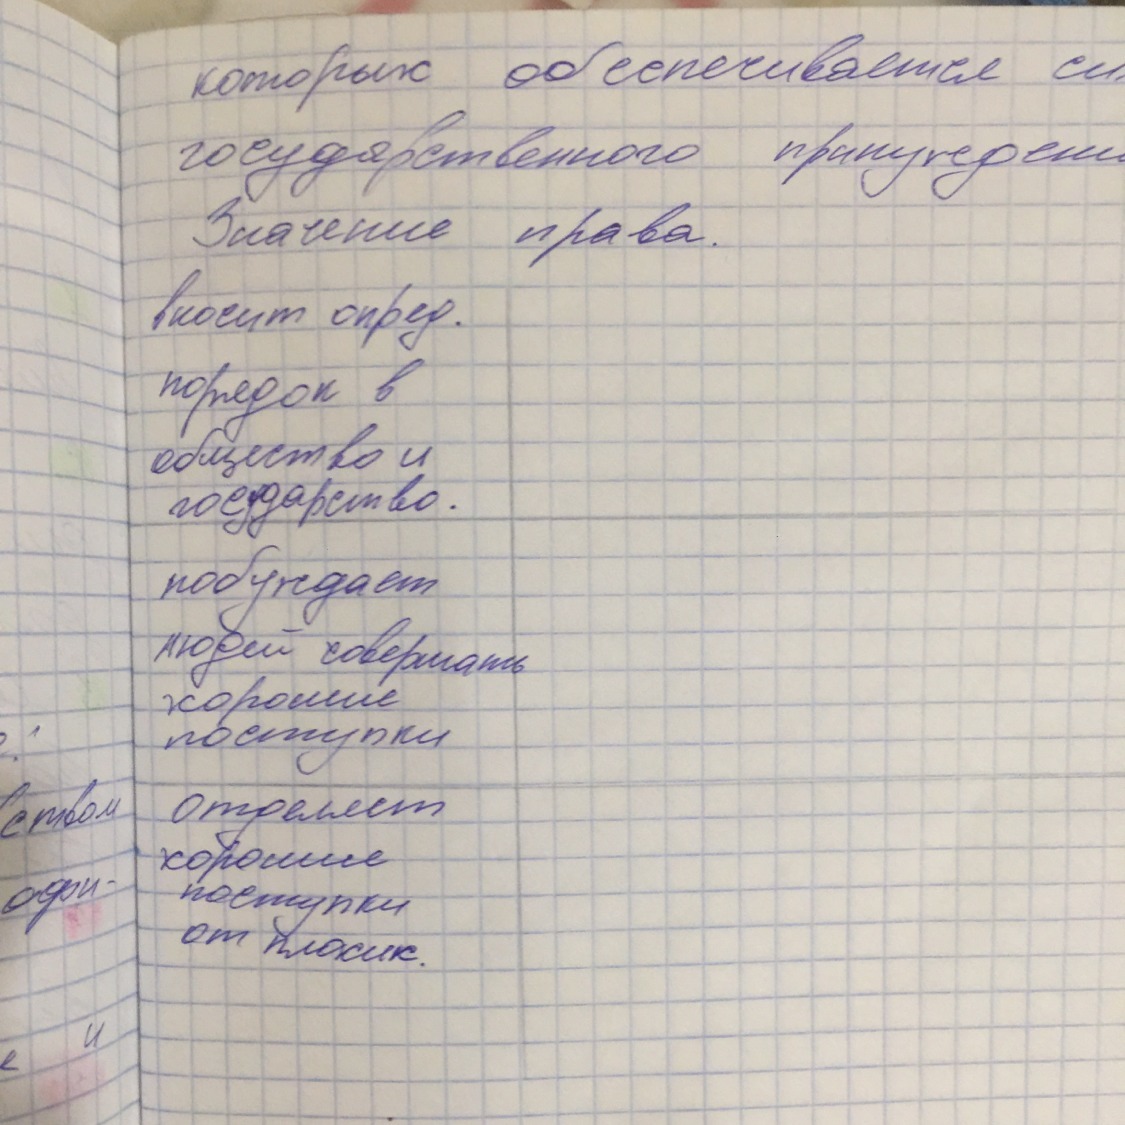 которых обеспечивается си
государственного принуждени
Значение права.
вносит опред.
порядок в
общество и
государство.
побуждает
людей совершать
хорошие
поступки
отделяет
хорошие
поступки
от плохик.
ством
и